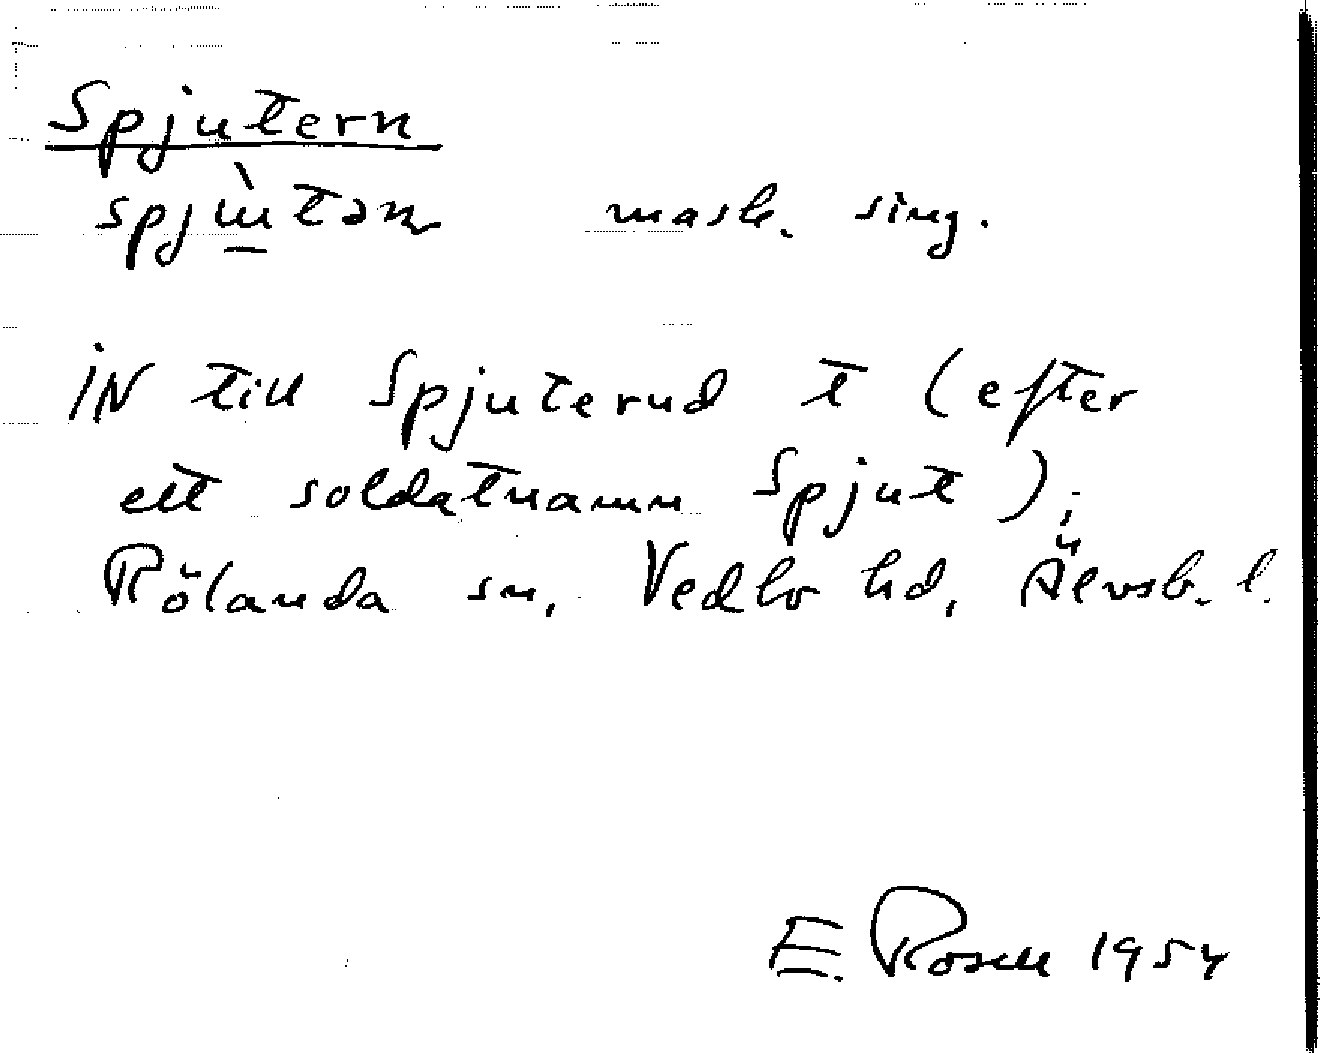 Spjutern
spjùtən mask. sing.
IN till Spjuterud t (efter
ett soldatnamn Spjut);
Rölanda sn, Vedbo hd, Älvsb. l.
E. Rosell 1954